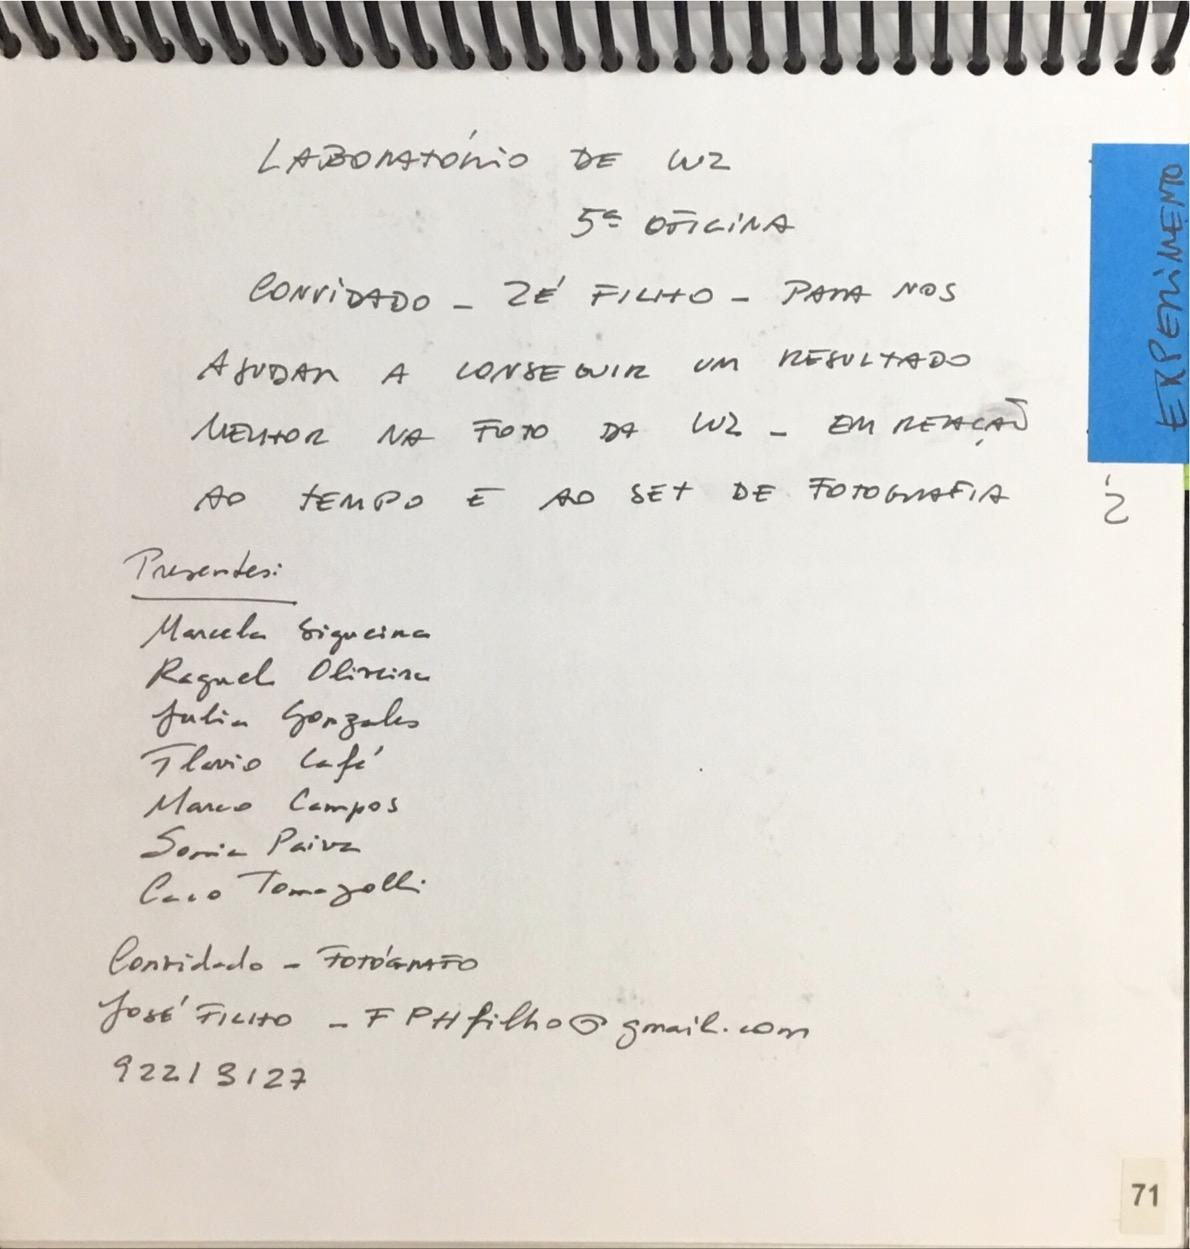 LABORATÓRIO DE LUZ
5ª OFICINA
CONVIDADO - ZÉ FILHO - PARA NOS
AJUDAR A CONSEGUIR UM RESULTADO
MELHOR NA FOTO DA LUZ - EM RELAÇÃO
AO TEMPO E AO SET DE FOTOGRAFIA
Presentes:
Marcela Siqueira
Raquel Oliveira
Julia Gonzales
Flavio Café
Marco Campos
Sonia Paiva
Caco Tomazolli
Convidado - FOTÓGRAFO
JOSÉ FILHO - FPHfilho@gmail.com
92213127
EXPERIMENTO
71